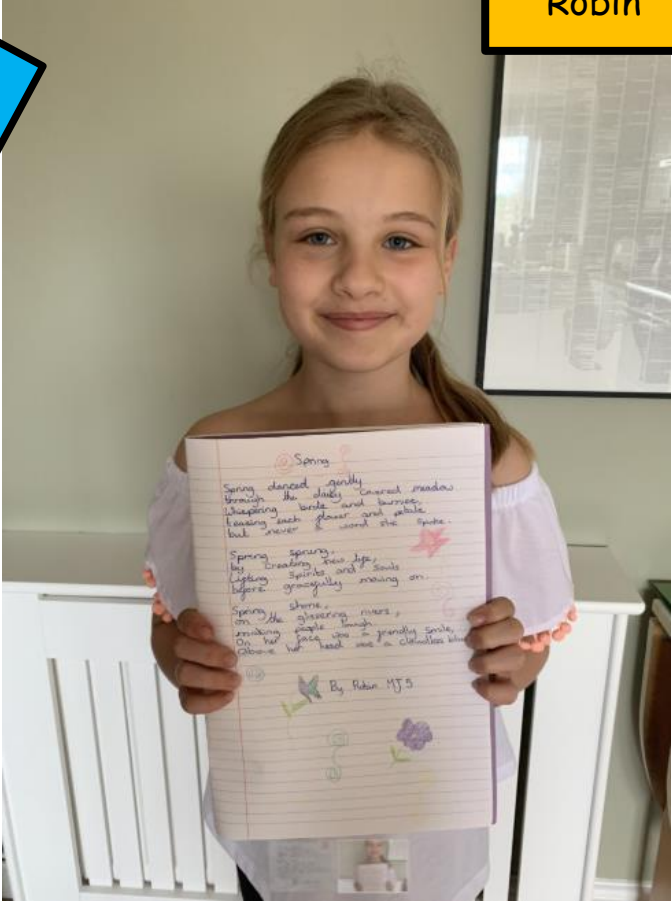 Robin
Spring
Spring danced gently
through the daisy covered meadow
Whispering birds and bunnies
teasing each flower and petals
but never a word she spoke.
Spring sprung,
by creating new life,
Lifting Spirits and Souls
before gracefully moving on.
Spring shone,
on the glistering rivers,
making people laugh
On her face was a friendly smile,
Above her head was a cloudless blue
By Robin MJ5